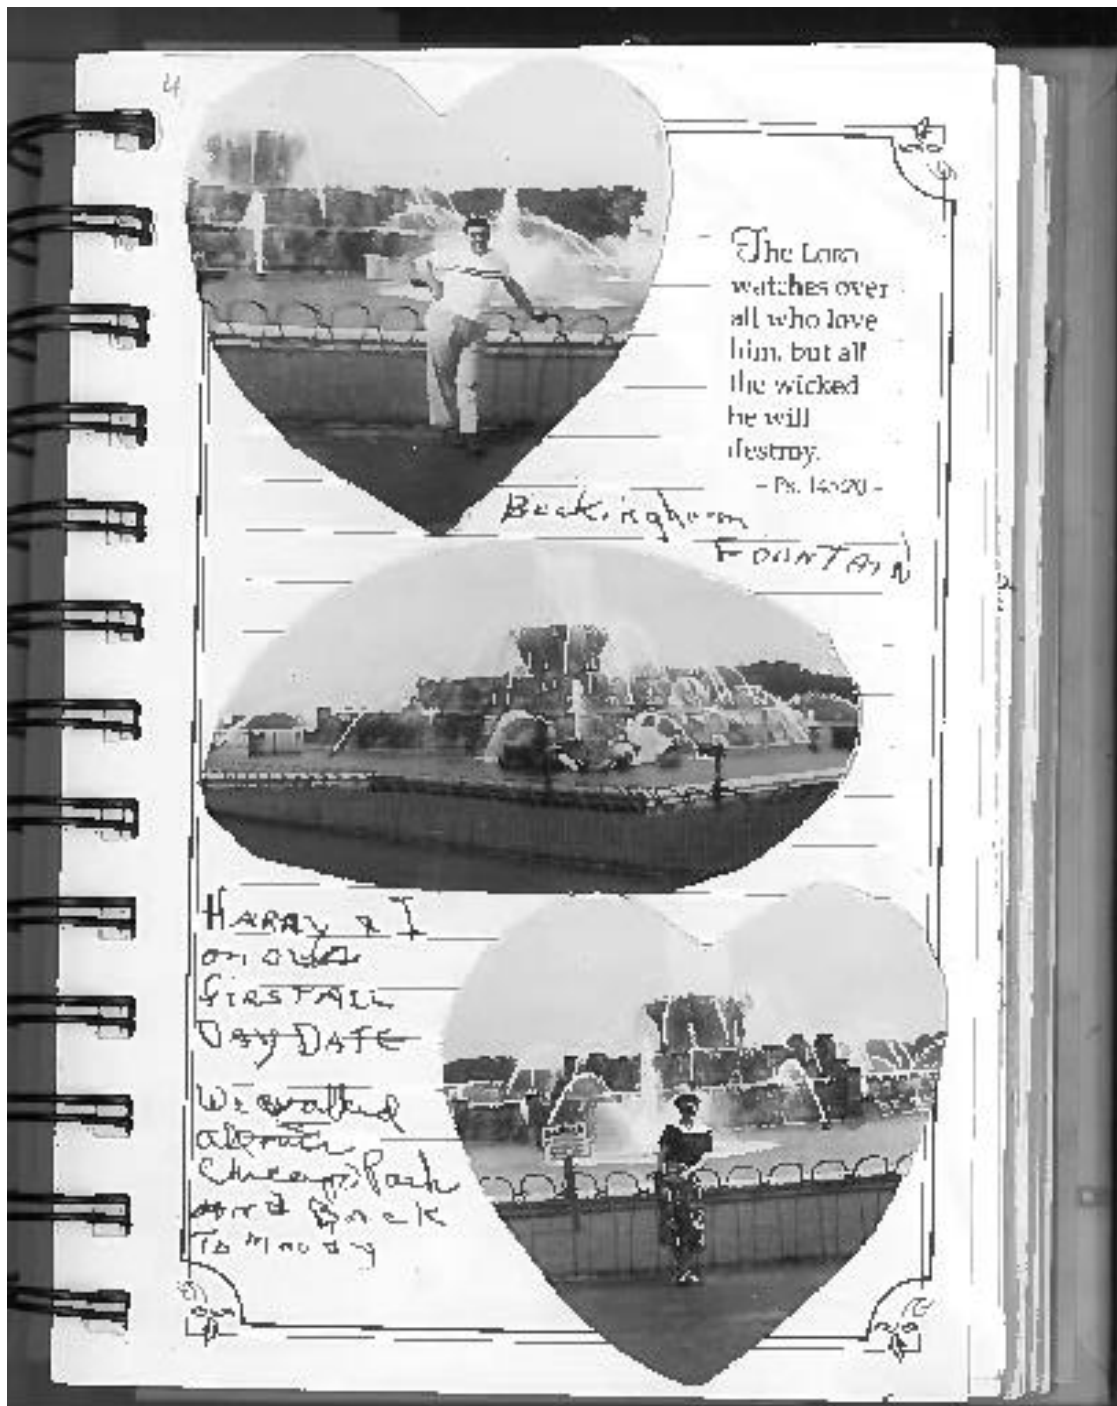 4
The LORD
watches over
all who love
him, but all
the wicked
he will
destroy.
– Ps. 145:20 –
Buckingham
FOUNTAIN
HARRY & I
on our
FIRST ALL
Day DATE
We walked
Chicago Park
and Back
To Moody